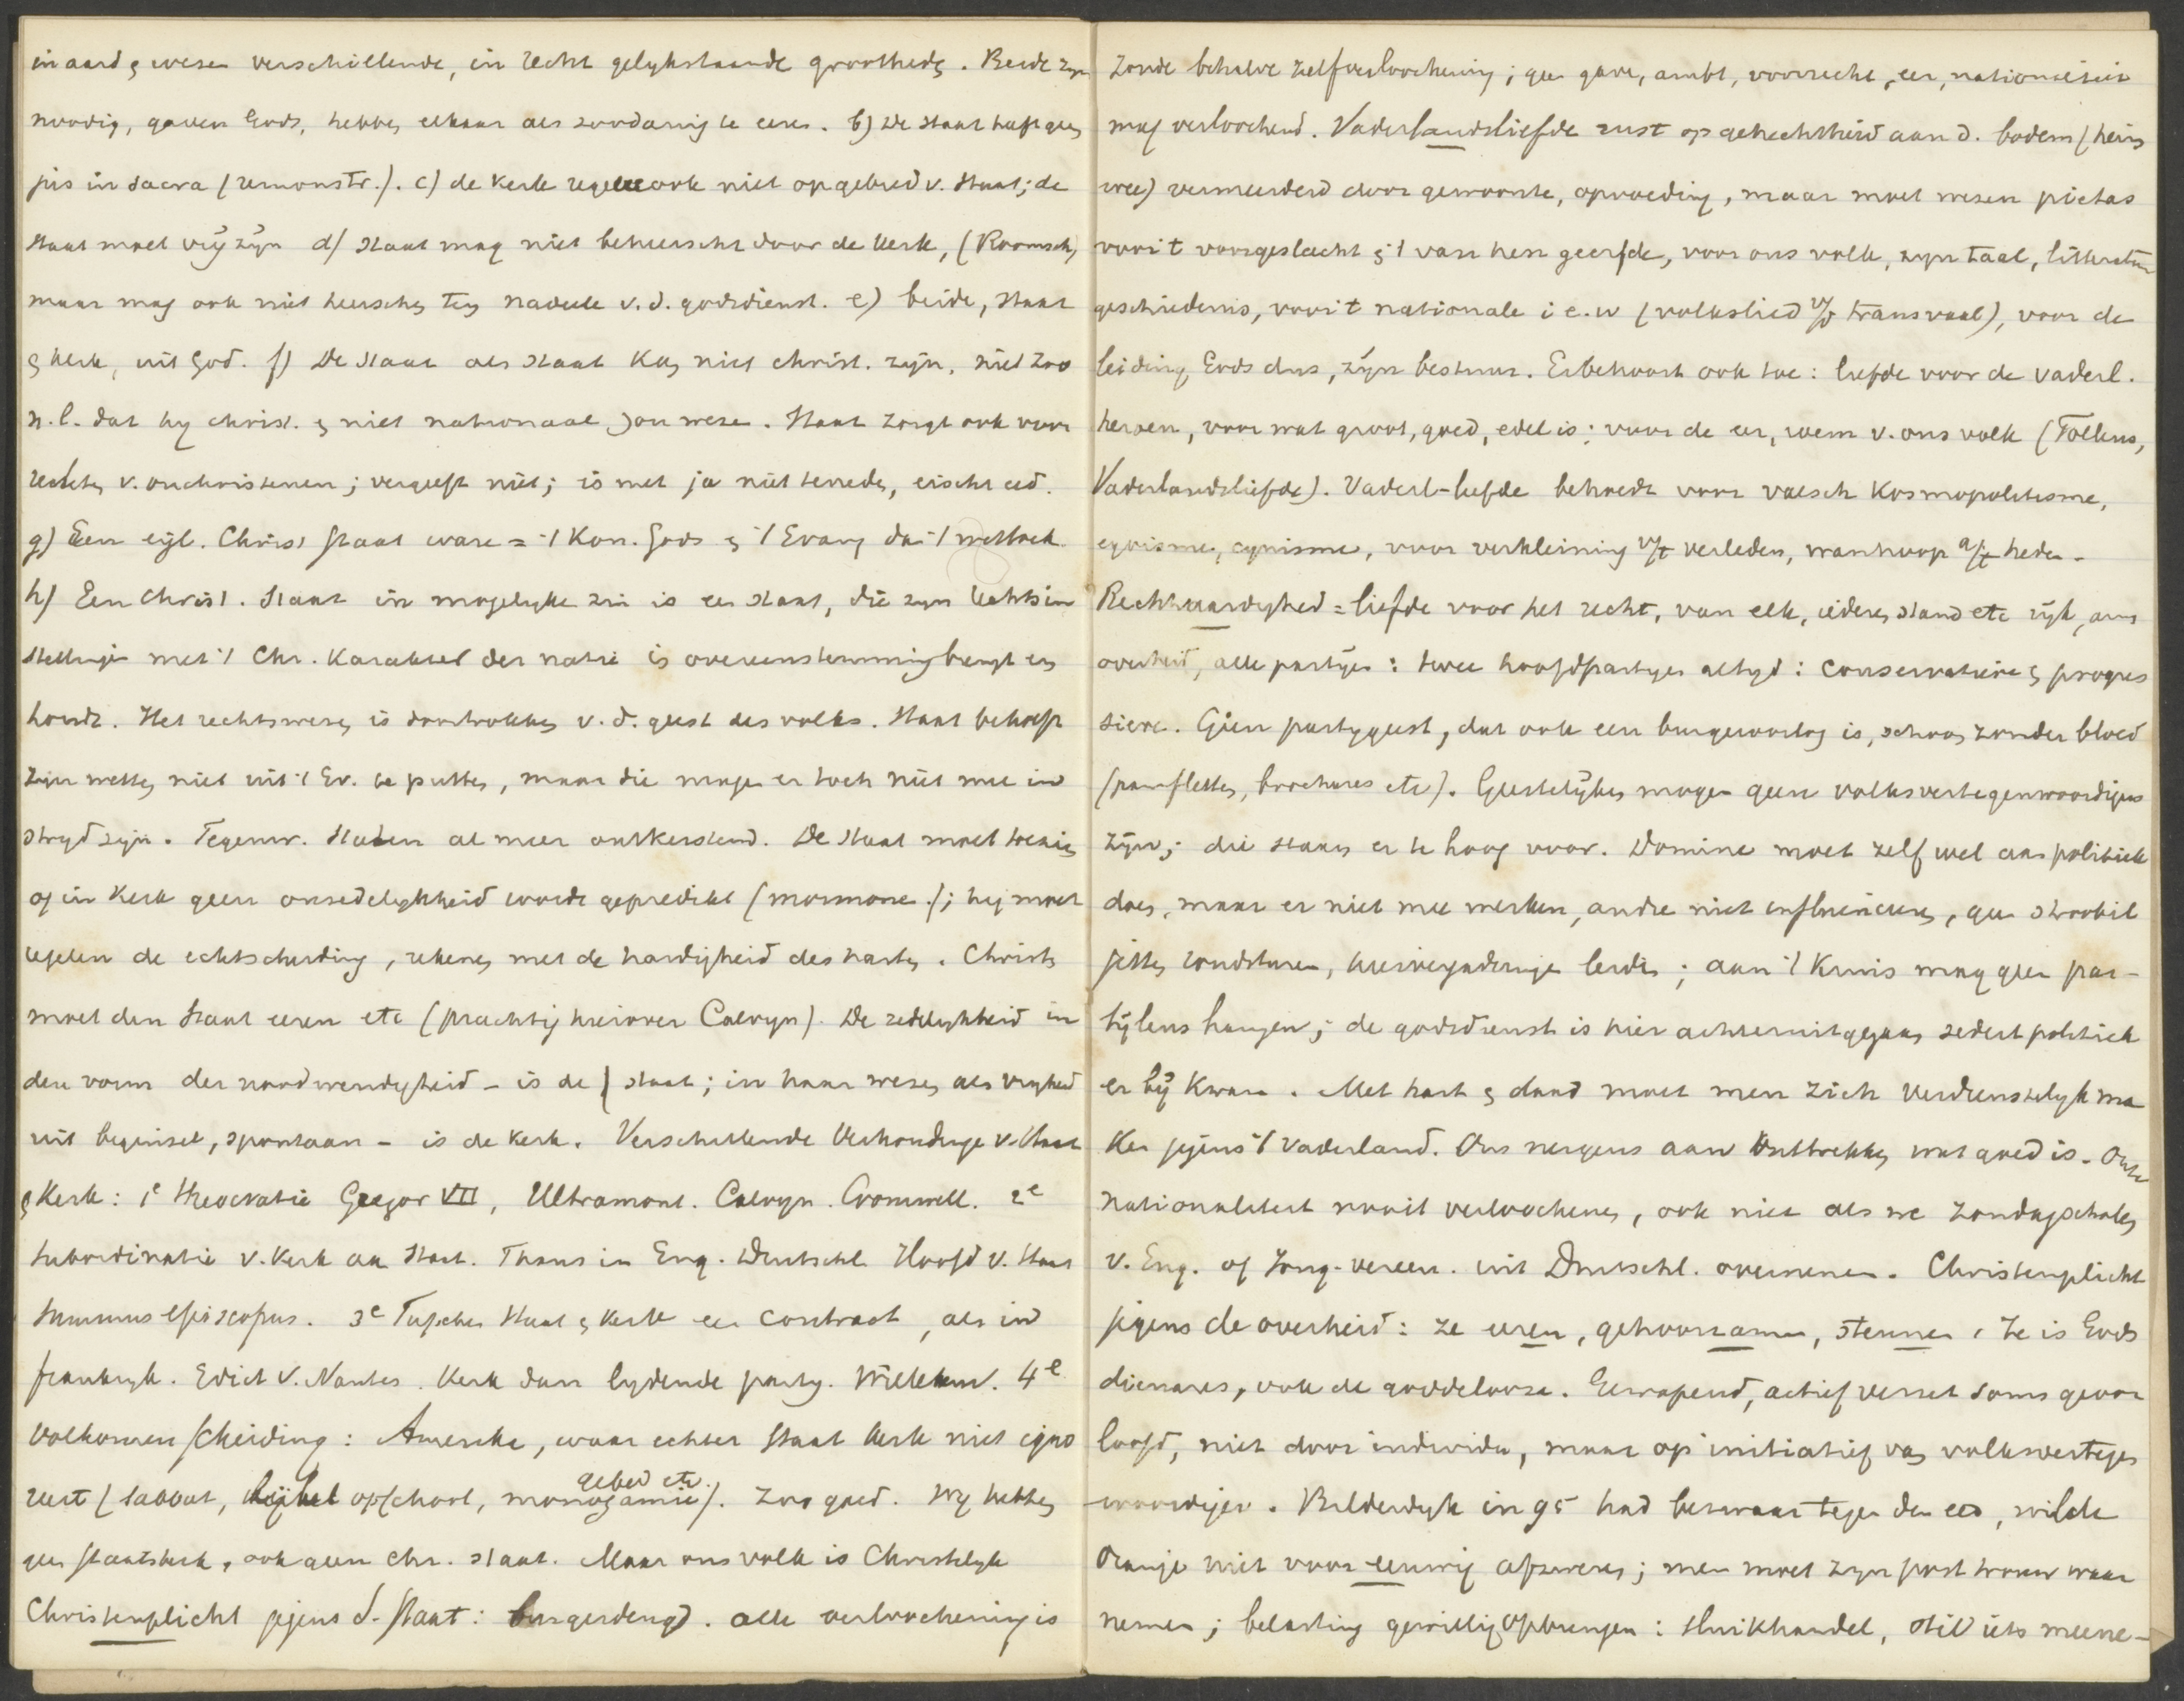 in aard & wezen verschillende, in recht gelykstaande grootheds. Beide zyn
noodig, gaven Gods, hebben elkaar als zoodanig te eeren. b) De Staat heeft geen
jus in sacra (remonstr.). c) de Kerk regeere ook niet op gebied v. Staat; de
Staat moet vrij zijn d) Staat mag niet beheerscht door de Kerk, (Roomsch)
maar mag ook niet heerschen ten nadeele v. d. godsdienst. e) beide, Staat
& Kerk, uit God. f) De Staat als Staat kan niet christ. zijn, niet zoo
n.l. dat hy christ. & niet nationaal zou wezen. Staat zorgt ook voor
rechten v. onchristenen; vergeeft niet; is met ja niet tevreden, eischt eed.
g) Een eigl. Christ Staat ware = 't Kon. Gods & 't Evang dan 't wetboek.
h) Een Christ. Staat in mogelyke zin is een Staat, die zyn rechtsin
stellingen met 't Chr. Karakter der natie in overeenstemming brengt en
houdt. Het rechtswezen is doortrokken v. d. geest des volks. Staat behoeft
zijn wetten niet uit 't Ev. te putten, maar die mogen er toch niet mee in
stryd zijn. Tegenw. Staten al meer ontkerstend. De Staat moet toezien
of in Kerk geen onzedelykheid wordt gepredikt (mormone.); hij moet
regelen de echtscheiding, rekenen met de hardigheid des harten. Christen
moet den Staat eeren etc (prachtig hierover Calvyn). De zedelykheid in
den vorm der noodwendigheid – is de Staat; in haar wezen als vryheid
uit beginsel, spontaan – is de Kerk. Verschillende Verhoudinge v. Staat
& Kerk: 1e theocratie Gregor VII, Ultramont. Calvyn. Cromwell. 2e
Subordinatie v. Kerk aan Staat. Thans in Eng. Deutschl. Hoofd v. Staat
Summus episcopus. 3e Tusschen Staat & Kerk een contract, als in
frankryk. Edict v. Nantes. Kerk dan lydende party. Willekeur. 4e
Volkomen scheiding: Amerika, waar echter Staat Kerk niet igno
gebed etc.
reert (sabbat, bijbel op school, monogamie). Zoo goed. Wy hebben
geen staatskerk, ook geen chr. Staat. Maar ons volk is Christelyk
Christenplicht jegens d. Staat: burgerdeugd. Alle verloochening is
zonde behalve zelfverloochening; geen gave, ambt, voorrecht, eer, nationaliteit
mag verloochend. Vaderlandsliefde rust op gehechtheid aan d. bodem (heim
wee) vermeerderd door gewoonte, opvoeding, maar moet wezen pietas
voor 't voorgeslacht & 't van hen geerfde, voor ons volk, zyn taal, litteratuur
geschiedenis, voor 't nationale i. e. w (volkslied v/d Transvaal), voor de
leiding Gods dus, zijn bestuur. Er behoort ook toe: liefde voor de vaderl.
heroen, voor wat groot, goed, edel is; voor de eer, roem v. ons volk (Tollens,
Vaderlandsliefde). Vaderl-liefde behoedt voor valsch Kosmopolitisme,
egoisme, cynisme, voor verkleining v/t verleden, wanhoop a/t heden.
Rechtvaardigheid = liefde voor het recht, van elk, iederen stand etc rijk, arm
overheid, alle partijen: twee hoofdpartyen altyd: conservatieve & progres
sieve. Geen partygeest, dat ook een burgeroorlog is, schoon zonder bloed
(pamfletten, brochures etc). Geestelijken mogen geen volksvertegenwoordigers
zijn; die staan er te hoog voor. Dominé moet zelf wel aan politiek
doen, maar er niet mee werken, andre niet influenceren, geen strooibil
jetten rondsturen, kiesvergaderingen leiden; aan 't Kruis mag geen par-
tijleus hangen; de godsdienst is hier achteruitgegaan sedert politiek
er bij Kwam. Met hart & daad moet men zich verdienstelyk ma
ken jegens 't vaderland. Ons nergens aan onttrekken wat goed is. Onze
nationaliteit nooit verloochenen, ook niet als we Zondagscholen
v. Eng. of Jong-vereen. uit Duitschl. overnemen. Christenplicht
jegens de overheid: ze eeren, gehoorzamen, steunen. Ze is Gods
dienares, ook de goddelooze. Gewapend, actief verzet soms geoor
loofd, niet door individu, maar op initiatief van volksvertegen
woordiger. Bilderdyk in 95 had bezwaar tegen den eed, wilde
Oranje niet voor eeuwig afzweren; men moet zyn post trouw waar
nemen; belasting gewillig opbrengen: sluikhandel, stil iets meene-